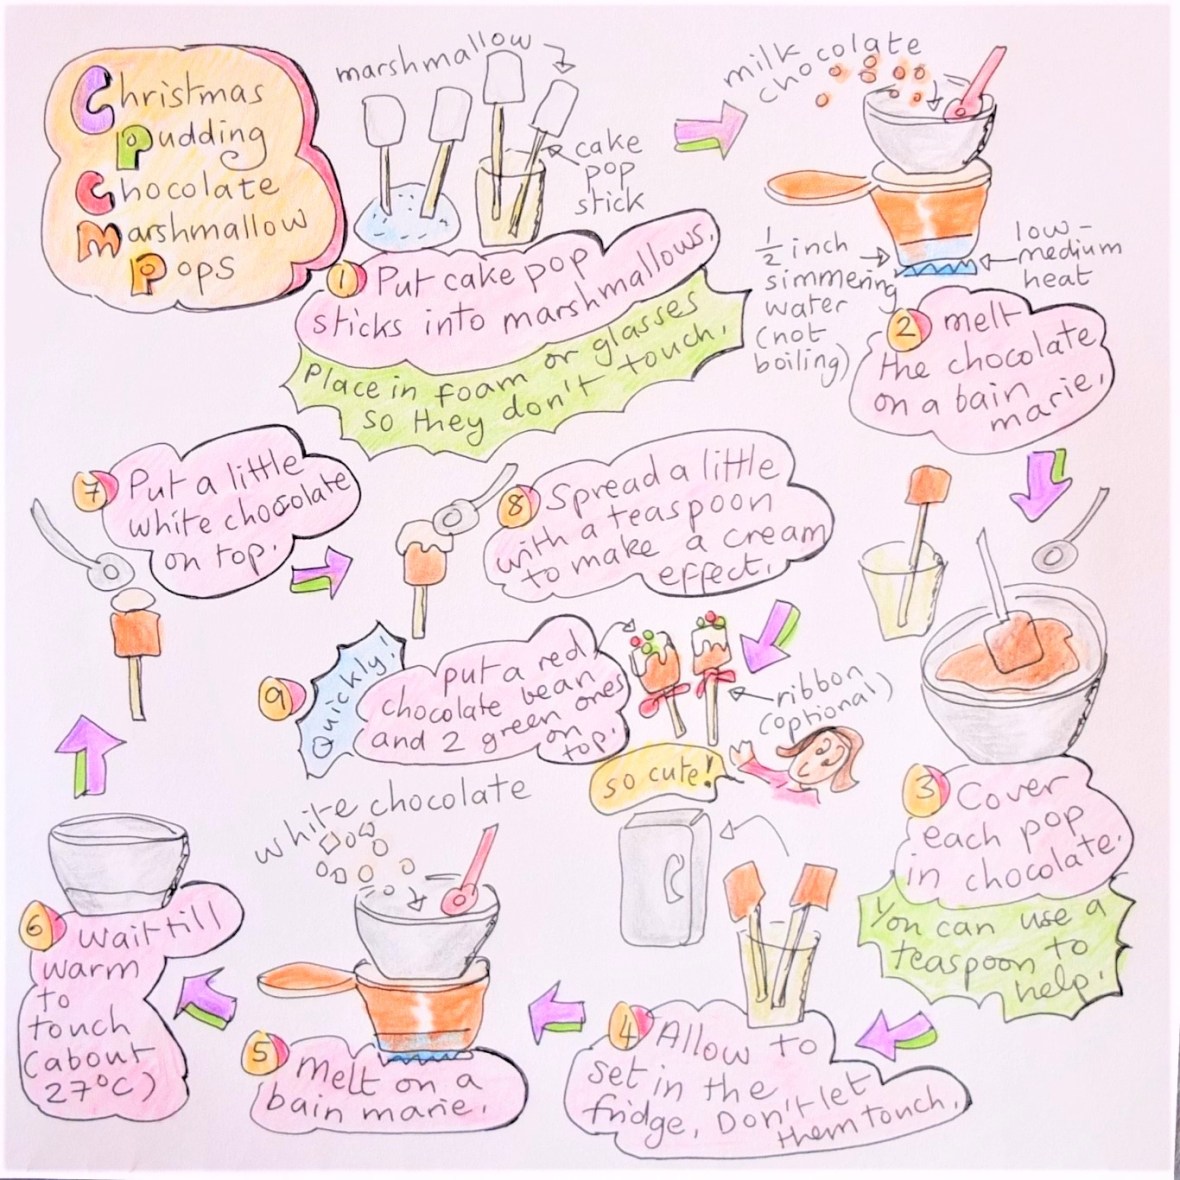 Christmas
Pudding
Chocolate
Marshmallow
Pops
marshmallow
cake
pop
stick
1 Put cake pop
sticks into marshmallows.
Place in foam or glasses
so they don't touch.
milk chocolate
1/2 inch
simmering
water
(not
boiling)
low-
medium
heat
2 melt
the chocolate
on a bain
marie.
3 Cover
each pop
in chocolate.
You can use a
teaspoon to
help.
4 Allow to
set in the
fridge. Don't let
them touch.
white chocolate
5 Melt on a
bain marie.
6 Wait till
warm
to
touch
(about
27°C)
7 Put a little
white chocolate
on top.
8 Spread a little
with a teaspoon
to make a cream
effect.
9 Quickly!
put a red
chocolate bean
and 2 green ones
on
top.
ribbon
(optional)
so cute!